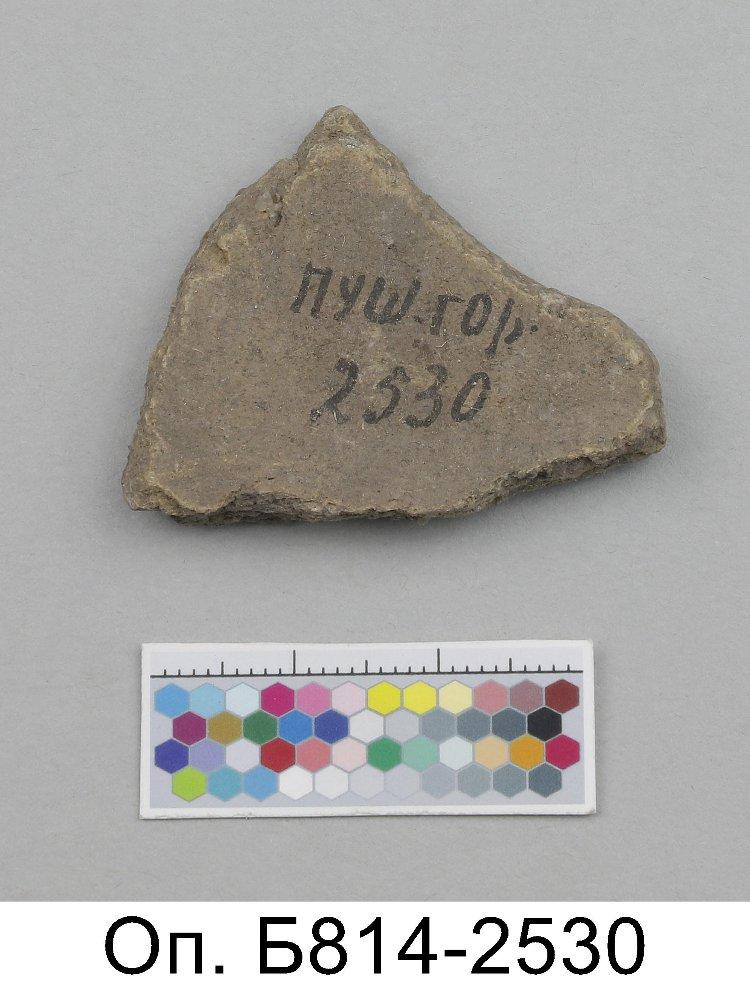 ПУШ.ГОР.
2530
Оп. Б814-2530